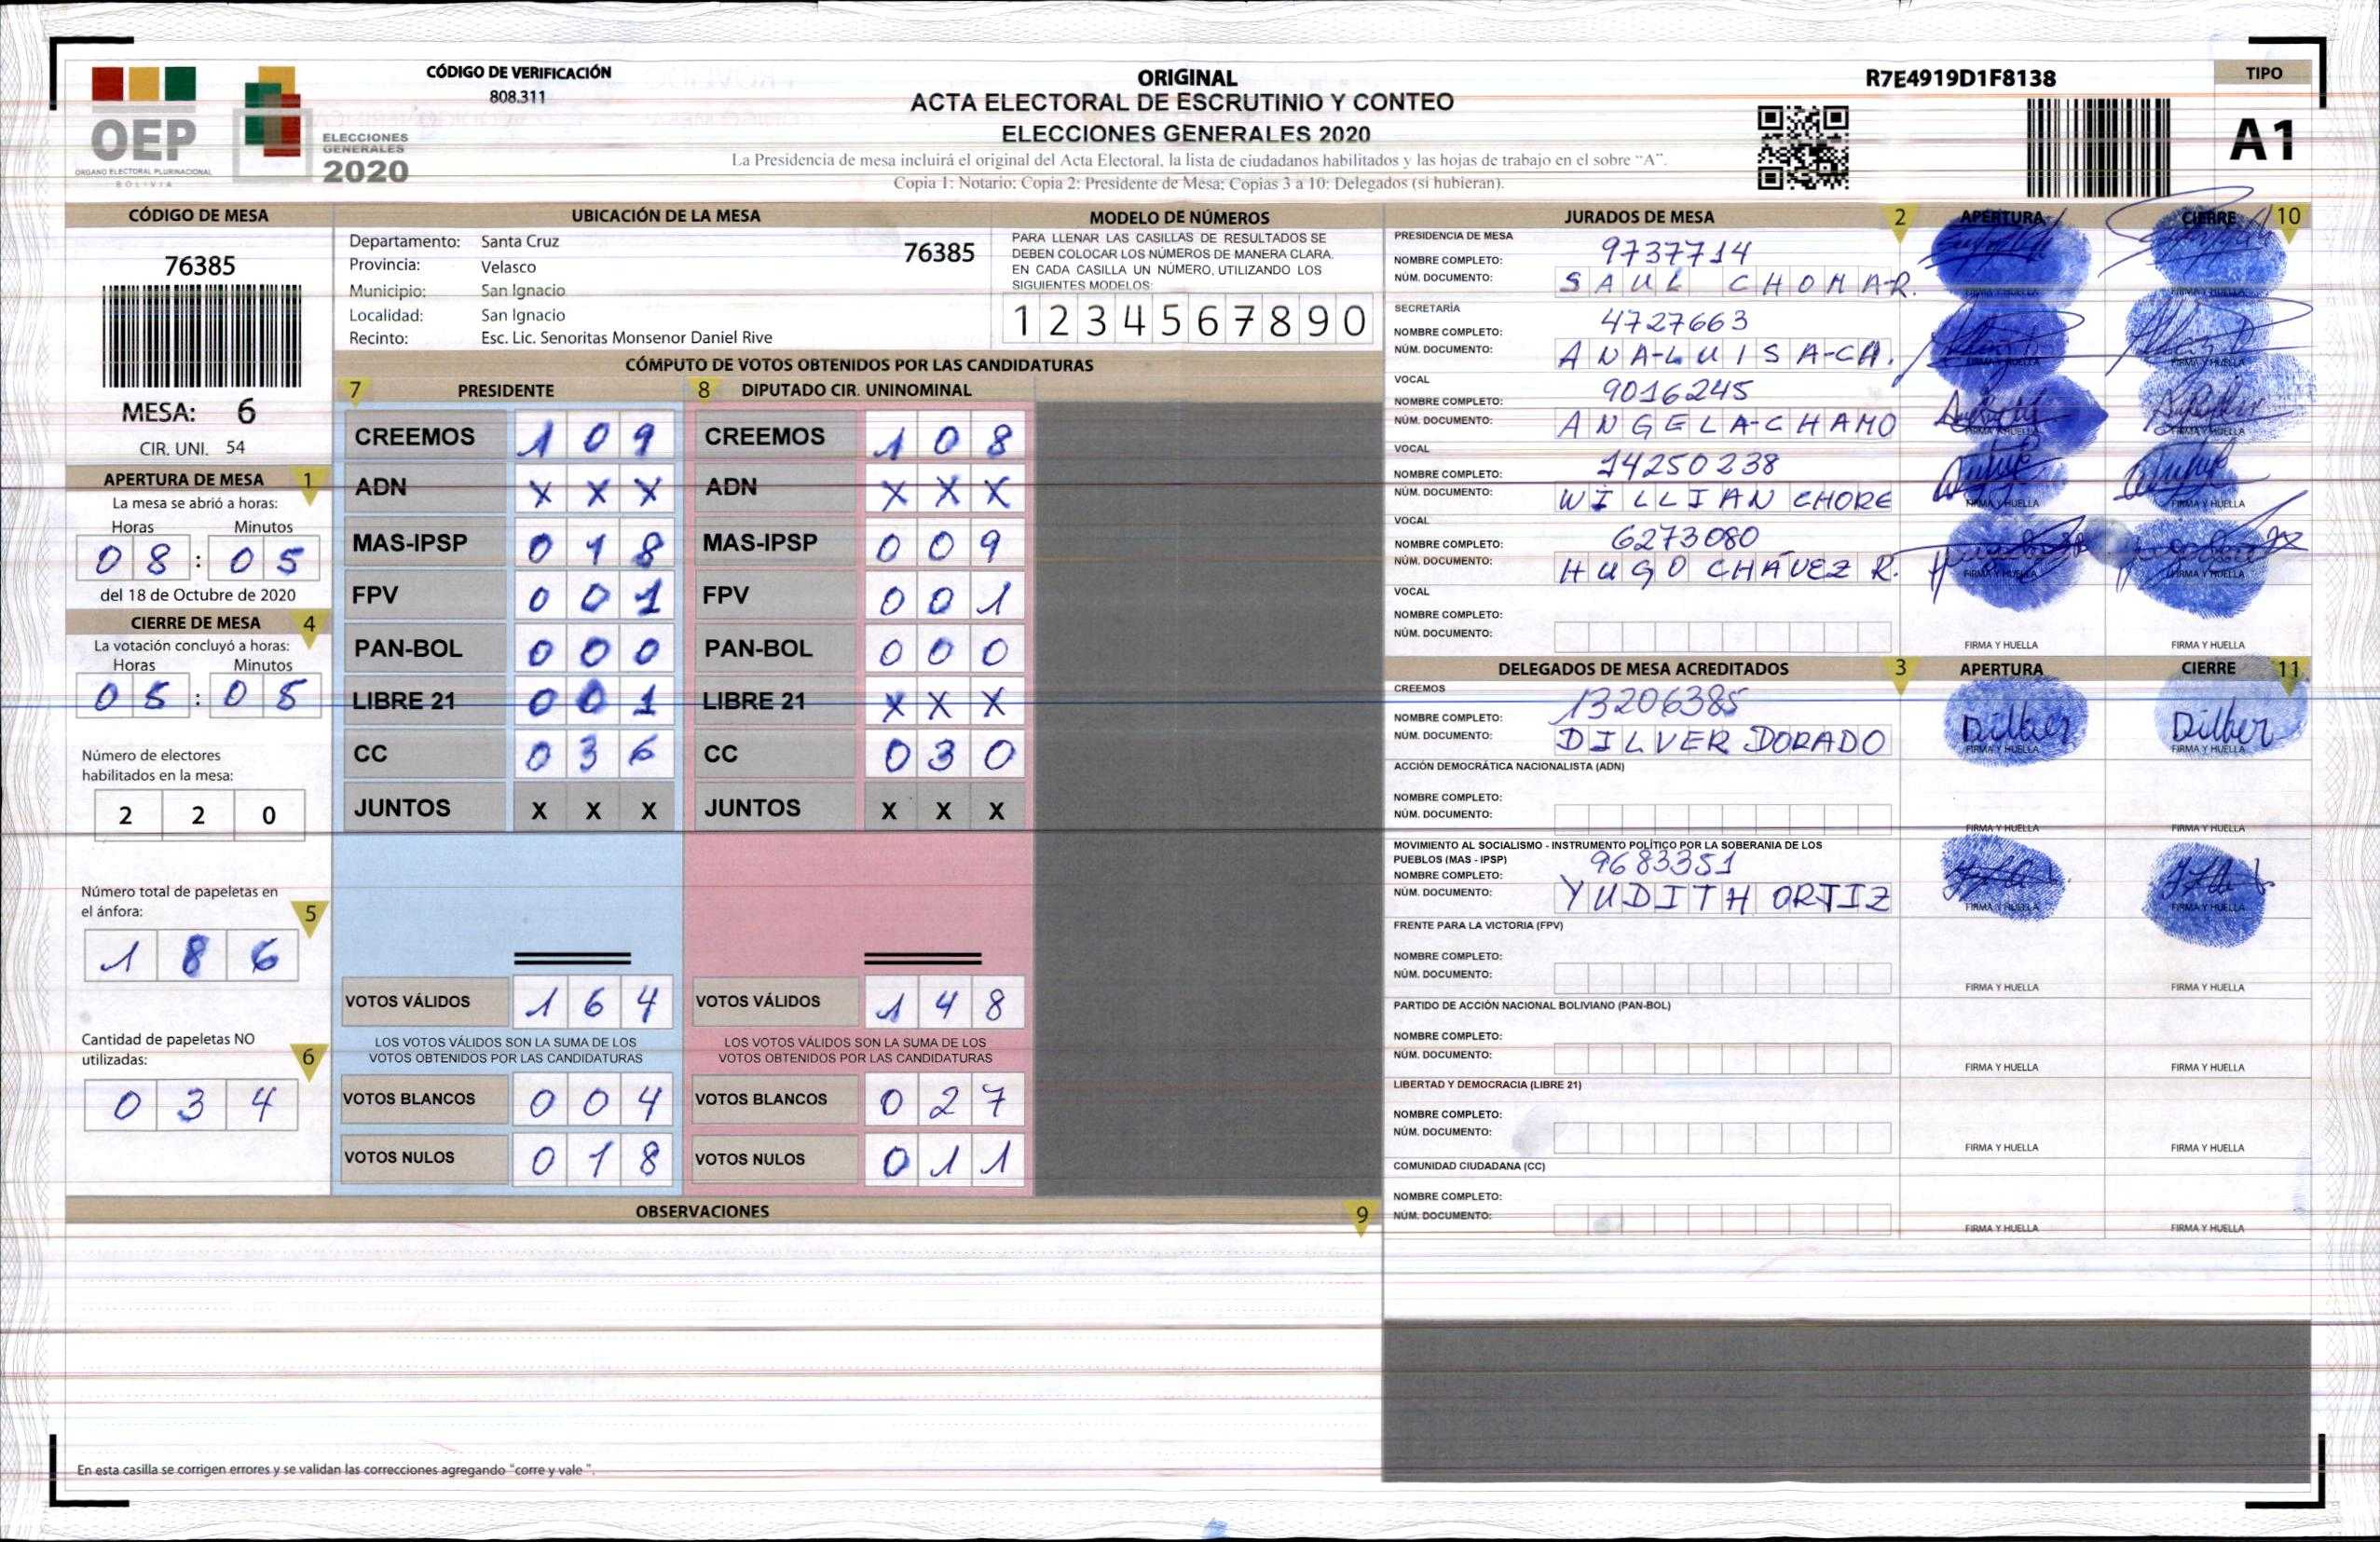 OEP
ÓRGANO ELECTORAL PLURINACIONAL
BOLIVIA
ELECCIONES
GENERALES
2020
CÓDIGO DE VERIFICACIÓN
808.311
ORIGINAL
ACTA ELECTORAL DE ESCRUTINIO Y CONTEO
ELECCIONES GENERALES 2020
La Presidencia de mesa incluirá el original del Acta Electoral, la lista de ciudadanos habilitados y las hojas de trabajo en el sobre "A".
Copia 1: Notario; Copia 2: Presidente de Mesa; Copias 3 a 10: Delegados (si hubieran).
R7E4919D1F8138
TIPO
A1
CÓDIGO DE MESA
76385
MESA: 6
CIR. UNI. 54
APERTURA DE MESA 1
La mesa se abrió a horas:
Horas Minutos
08 : 05
del 18 de Octubre de 2020
CIERRE DE MESA 4
La votación concluyó a horas:
Horas Minutos
05 : 05
Número de electores
habilitados en la mesa:
2 2 0
Número total de papeletas en
el ánfora: 5
1 8 6
Cantidad de papeletas NO
utilizadas: 6
0 3 4
UBICACIÓN DE LA MESA
Departamento: Santa Cruz 76385
Provincia: Velasco
Municipio: San Ignacio
Localidad: San Ignacio
Recinto: Esc. Lic. Senoritas Monsenor Daniel Rive
MODELO DE NÚMEROS
PARA LLENAR LAS CASILLAS DE RESULTADOS SE
DEBEN COLOCAR LOS NÚMEROS DE MANERA CLARA.
EN CADA CASILLA UN NÚMERO, UTILIZANDO LOS
SIGUIENTES MODELOS:
1 2 3 4 5 6 7 8 9 0
CÓMPUTO DE VOTOS OBTENIDOS POR LAS CANDIDATURAS
7 PRESIDENTE 8 DIPUTADO CIR. UNINOMINAL
CREEMOS 1 0 9 CREEMOS 1 0 8
ADN X X X ADN X X X
MAS-IPSP 0 1 8 MAS-IPSP 0 0 9
FPV 0 0 1 FPV 0 0 1
PAN-BOL 0 0 0 PAN-BOL 0 0 0
LIBRE 21 0 0 1 LIBRE 21 X X X
CC 0 3 6 CC 0 3 0
JUNTOS X X X JUNTOS X X X
VOTOS VÁLIDOS 1 6 4 VOTOS VÁLIDOS 1 4 8
LOS VOTOS VÁLIDOS SON LA SUMA DE LOS LOS VOTOS VÁLIDOS SON LA SUMA DE LOS
VOTOS OBTENIDOS POR LAS CANDIDATURAS VOTOS OBTENIDOS POR LAS CANDIDATURAS
VOTOS BLANCOS 0 0 4 VOTOS BLANCOS 0 2 7
VOTOS NULOS 0 1 8 VOTOS NULOS 0 1 1
OBSERVACIONES 9
En esta casilla se corrigen errores y se validan las correcciones agregando "corre y vale ".
JURADOS DE MESA 2 APERTURA CIERRE 10
PRESIDENCIA DE MESA
NOMBRE COMPLETO: 9737714
NÚM. DOCUMENTO: SAUL CHOMA-R.
FIRMA Y HUELLA FIRMA Y HUELLA
SECRETARÍA
NOMBRE COMPLETO: 4727663
NÚM. DOCUMENTO: ANA-LUISA-CA.
FIRMA Y HUELLA FIRMA Y HUELLA
VOCAL
NOMBRE COMPLETO: 9016245
NÚM. DOCUMENTO: ANGELA-CHAMO
FIRMA Y HUELLA FIRMA Y HUELLA
VOCAL
NOMBRE COMPLETO: 14250238
NÚM. DOCUMENTO: WILLIAN CHORE
FIRMA Y HUELLA FIRMA Y HUELLA
VOCAL
NOMBRE COMPLETO: 6273080
NÚM. DOCUMENTO: HUGO CHÁVEZ R.
FIRMA Y HUELLA FIRMA Y HUELLA
VOCAL
NOMBRE COMPLETO:
NÚM. DOCUMENTO:
FIRMA Y HUELLA FIRMA Y HUELLA
DELEGADOS DE MESA ACREDITADOS 3 APERTURA CIERRE 11
CREEMOS
NOMBRE COMPLETO: 13206385
NÚM. DOCUMENTO: DILVER DORADO
Dilber Dilber
FIRMA Y HUELLA FIRMA Y HUELLA
ACCIÓN DEMOCRÁTICA NACIONALISTA (ADN)
NOMBRE COMPLETO:
NÚM. DOCUMENTO:
FIRMA Y HUELLA FIRMA Y HUELLA
MOVIMIENTO AL SOCIALISMO - INSTRUMENTO POLÍTICO POR LA SOBERANIA DE LOS
PUEBLOS (MAS - IPSP)
NOMBRE COMPLETO: 9683351
NÚM. DOCUMENTO: YUDITH ORTIZ
FIRMA Y HUELLA FIRMA Y HUELLA
FRENTE PARA LA VICTORIA (FPV)
NOMBRE COMPLETO:
NÚM. DOCUMENTO:
FIRMA Y HUELLA FIRMA Y HUELLA
PARTIDO DE ACCIÓN NACIONAL BOLIVIANO (PAN-BOL)
NOMBRE COMPLETO:
NÚM. DOCUMENTO:
FIRMA Y HUELLA FIRMA Y HUELLA
LIBERTAD Y DEMOCRACIA (LIBRE 21)
NOMBRE COMPLETO:
NÚM. DOCUMENTO:
FIRMA Y HUELLA FIRMA Y HUELLA
COMUNIDAD CIUDADANA (CC)
NOMBRE COMPLETO:
NÚM. DOCUMENTO:
FIRMA Y HUELLA FIRMA Y HUELLA